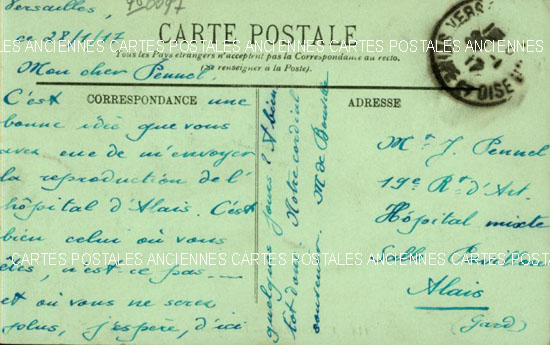 Versailles,
ce 28/1/17
CARTE POSTALE
Tous les Pays étrangers n'acceptent pas la Correspondance au recto.
(Se renseigner à la Poste).
CORRESPONDANCE
ADRESSE
Mon cher Pennel,
C'est une
bonne idée que vous
avez eue de m'envoyer
la reproduction de l'
hôpital d'Alais. C'est
bien celui où vous
êtes, n'est ce pas
et où vous ne serez
plus, j'espère, d'ici
quelques jours ! A bien
tôt donc. Notre cordial
souvenir. M de
Mr J. Pennel
19e Rt d'Art.
Hôpital mixte
Salle
Alais
(Gard)
CARTES POSTALES ANCIENNES CARTES POSTALES ANCIENNES CARTES POSTALES ANCIENNES
CARTES POSTALES ANCIENNES CARTES POSTALES ANCIENNES CARTES POSTALES ANCIENNES